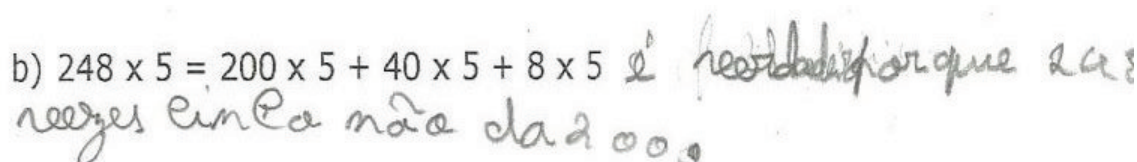 b) 248 x 5 = 200 x 5 + 40 x 5 + 8 x 5 é porque 248
veezes cinco não da 200.